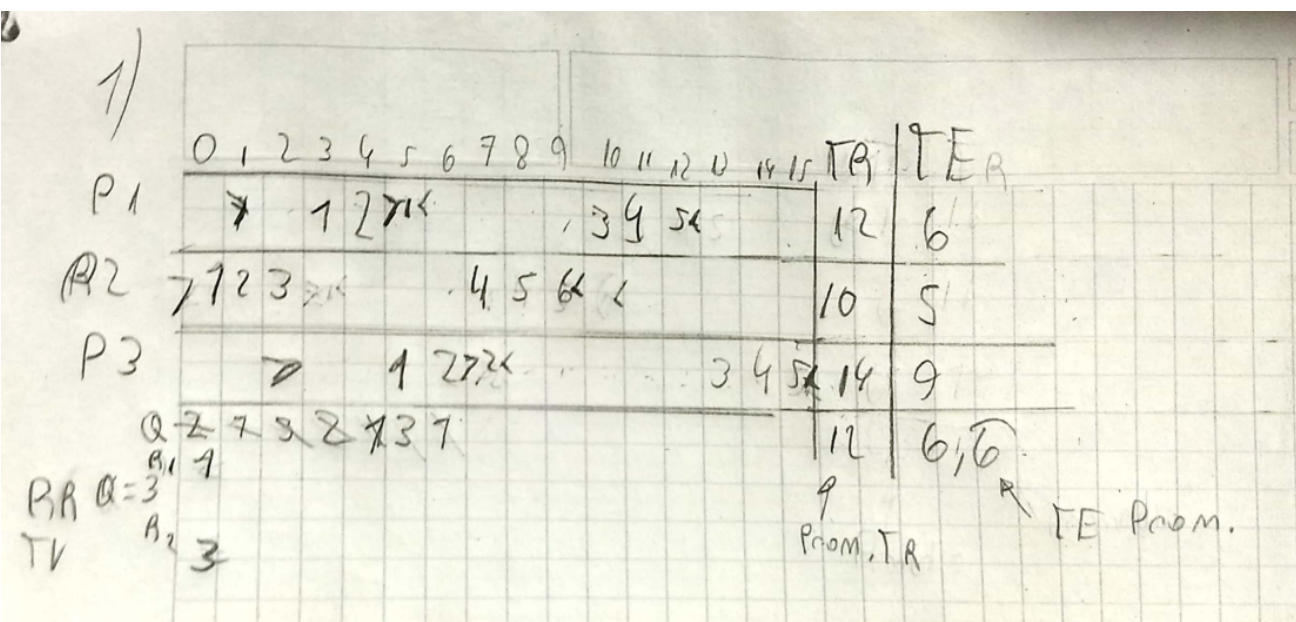 1)
0 1 2 3 4 5 6 7 8 9 10 11 12 13 14 15 TR TER
P1 > 1 2 > 1< 3 4 5< 12 6
P2 > 1 2 3 4 5 6< < 10 5
P3 > 1 2 > 2< 3 4 5< 14 9
Q 2 1 3 2 1 3 1 12 6,6
R1 1
RR Q=3
R2 3
TV
Prom. TR
TE Prom.